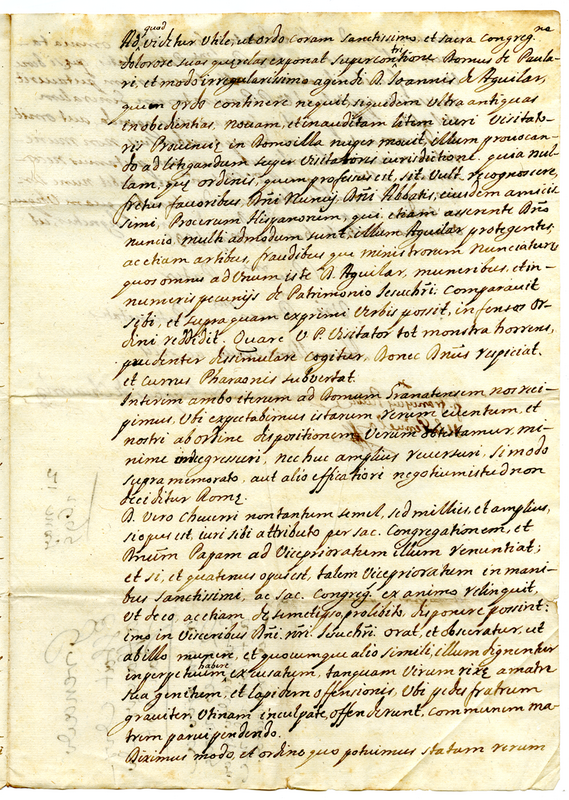 Ad quod, videtur utile, ut ordo coram Sanctissimo, et sacra Congreg.ne
dolorose suas querelas exponat super contritione Domus de Paula-
ri, et modo irregularissimo agendi D. Joannis de Aguilar,
quem ordo continere nequit, siquidem ultra antiquas
inobedientias, novam, et inauditam litem iuri Visitato-
ris Provinciæ in Domo illa nuper movit, illum provocan-
do ad litigandum super Visitatoris iurisdictione. quia nul-
lam, quis ordinis, quem professus est, sit, vult recognoscere,
fretus favoribus Dñi Nuncij, Dñi Abbatis, eiusdem amicis-
simi, Procerum Hispanorum, qui, etiam asserente Dño
nuncio multi admodum sunt, illum Aguilar protegentes,
ac etiam artibus, fraudibus que ministrorum Nunciaturæ
quos omnes ad unum iste D. Aguilar, muneribus, et in-
numeris pecunijs de Patrimonio Jesuchri. comparavit
sibi, et supra quam exprimi verbis possit, infensos or-
dini reddidit. Quare V. P. Visitator tot monstra horrens,
prudenter dissimulare cogitur, Donec Dñus respiciat,
et currus Pharaonis subvertat.
Interim ambo iterum ad Domum Granatensem nos reci-
pimus, ubi expectabimus istarum rerum eventum, et
nostri ab ordine dispositionem. Verum obtestamur, mi-
nime regressuri, nec huc amplius reversuri, si modo
supra memorato, aut alio efficatiori negotium istud non
deciditur Romæ.
D. Vero Chavarri non tantum semel, sed millies, et amplius,
si opus est, iuri sibi attributo per sac. Congregationem, et
Dnum Papam ad Viceprioratum illum renuntiat;
et si, et quatenus opus est, talem Viceprioratum in mani-
bus Sanctissimi, ac sac. Congreg. ex animo relinquit,
ut de eo, ac etiam de semetipso, prolibito, disponere possint:
imo in visceribus Dñi. nri. Jesuchri. orat, et obsecratur, ut
ab illo munere, et quocumque alio simili, illum dignentur
in perpetuum habere excusatum, tanquam virum rixæ a matre
sua genitum, et lapidem offensionis, ubi pedes fratrum
graviter, utinam inculpate, offenderunt, communem ma-
trem parvi pendendo.
Diximus modo, et ordine quo potuimus statum rerum